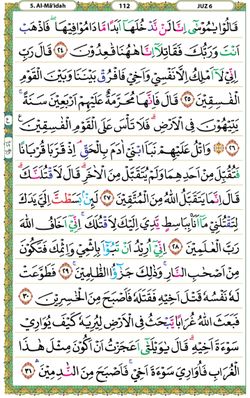 5. Al-Mâ'idah 112 JUZ 6
قَالُوْا يٰمُوْسٰۤى اِنَّا لَنْ نَّدْخُلَهَاۤ اَبَدًا مَّا دَامُوْا فِيْهَا ۖ فَاذْهَبْ
اَنْتَ وَرَبُّكَ فَقَاتِلَاۤ اِنَّا هٰهُنَا قٰعِدُوْنَ ٢٤ قَالَ رَبِّ
اِنِّيْ لَاۤ اَمْلِكُ اِلَّا نَفْسِيْ وَاَخِيْ فَافْرُقْ بَيْنَنَا وَبَيْنَ الْقَوْمِ
الْفٰسِقِيْنَ ٢٥ قَالَ فَاِنَّهَا مُحَرَّمَةٌ عَلَيْهِمْ اَرْبَعِيْنَ سَنَةً ۚ
يَتِيْهُوْنَ فِي الْاَرْضِ ۗ فَلَا تَاْسَ عَلَى الْقَوْمِ الْفٰسِقِيْنَ
٢٦ وَاتْلُ عَلَيْهِمْ نَبَاَ ابْنَيْ اٰدَمَ بِالْحَقِّ ۘ اِذْ قَرَّبَا قُرْبَانًا
فَتُقُبِّلَ مِنْ اَحَدِهِمَا وَلَمْ يُتَقَبَّلْ مِنَ الْاٰخَرِ ۗ قَالَ لَاَقْتُلَنَّكَ ۗ
قَالَ اِنَّمَا يَتَقَبَّلُ اللّٰهُ مِنَ الْمُتَّقِيْنَ ٢٧ لَئِنْۢ بَسَطْتَّ اِلَيَّ يَدَكَ
لِتَقْتُلَنِيْ مَاۤ اَنَا بِبَاسِطٍ يَّدِيَ اِلَيْكَ لِاَقْتُلَكَ ۚ اِنِّيْۤ اَخَافُ اللّٰهَ
رَبَّ الْعٰلَمِيْنَ ٢٨ اِنِّيْۤ اُرِيْدُ اَنْ تَبُوْٓاَ بِاِثْمِيْ وَاِثْمِكَ فَتَكُوْنَ
مِنْ اَصْحٰبِ النَّارِ ۚ وَذٰلِكَ جَزٰٓؤُا الظّٰلِمِيْنَ ٢٩ فَطَوَّعَتْ
لَهٗ نَفْسُهٗ قَتْلَ اَخِيْهِ فَقَتَلَهٗ فَاَصْبَحَ مِنَ الْخٰسِرِيْنَ ٣٠
فَبَعَثَ اللّٰهُ غُرَابًا يَّبْحَثُ فِي الْاَرْضِ لِيُرِيَهٗ كَيْفَ يُوَارِيْ
سَوْءَةَ اَخِيْهِ ۗ قَالَ يٰوَيْلَتٰۤى اَعَجَزْتُ اَنْ اَكُوْنَ مِثْلَ هٰذَا
الْغُرَابِ فَاُوَارِيَ سَوْءَةَ اَخِيْ ۚ فَاَصْبَحَ مِنَ النّٰدِمِيْنَ ٣١